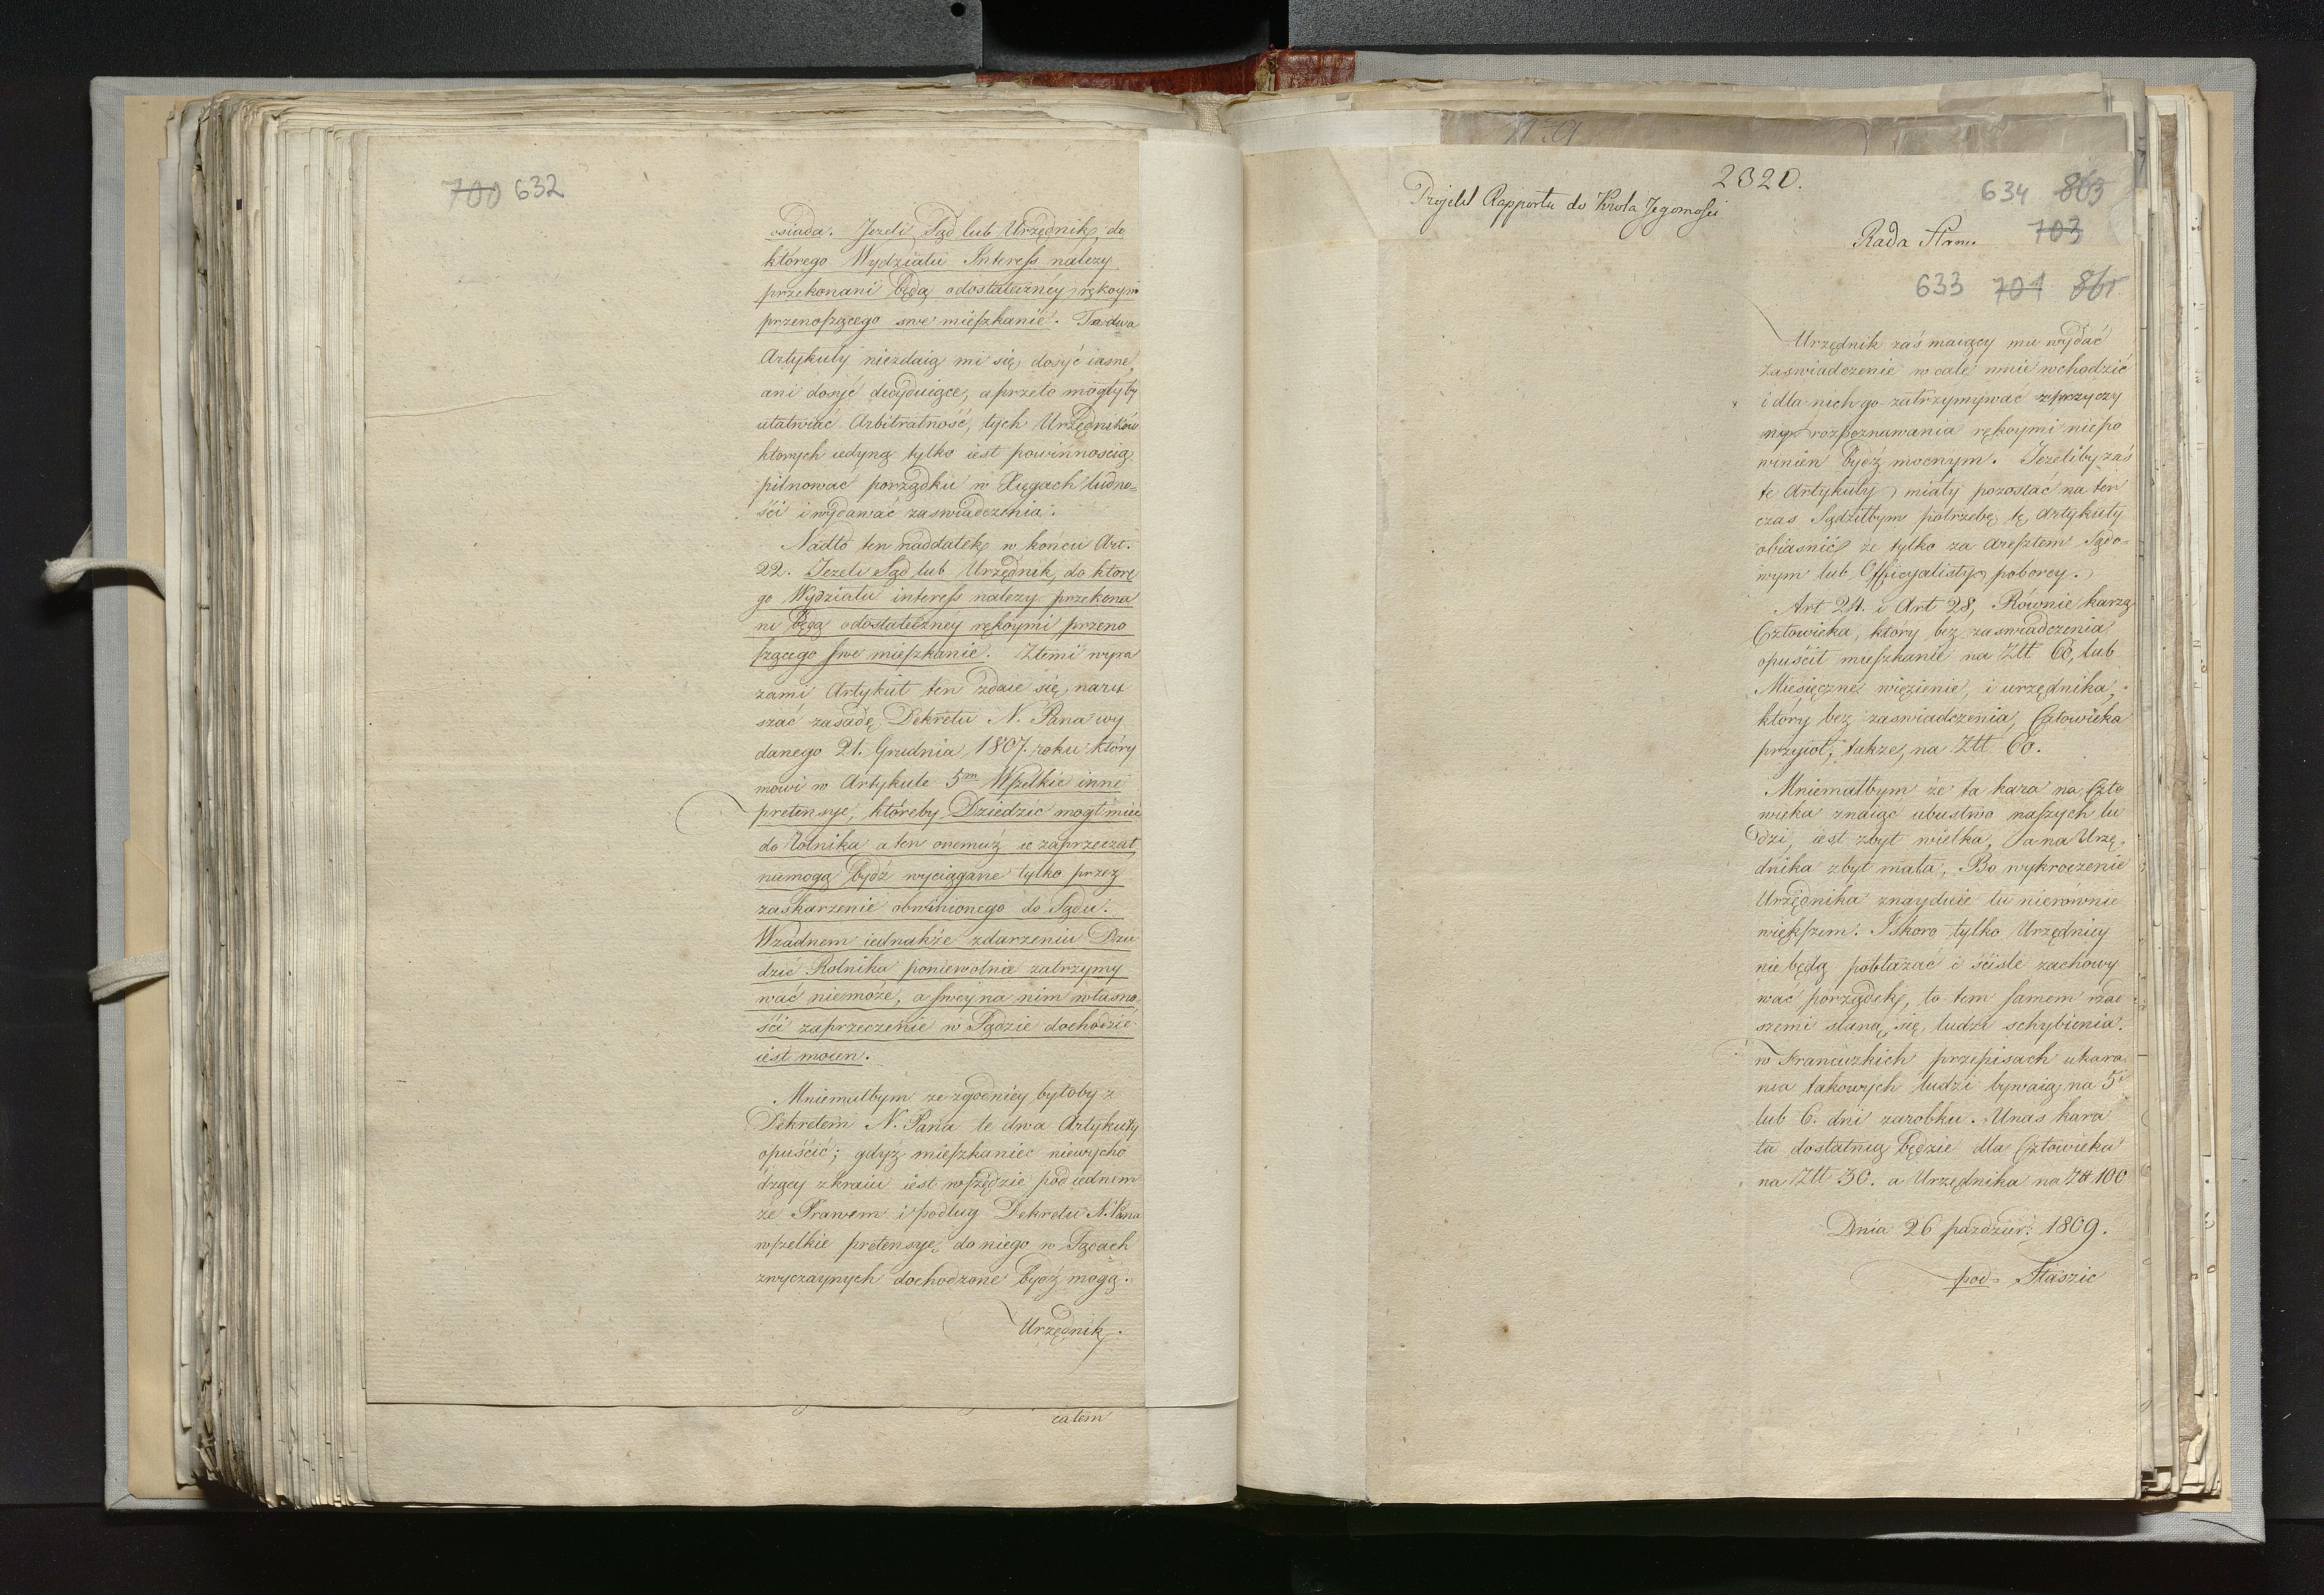 700 632
osiada. Jezeli Sąd lub Urzędnik, do
którego Wydziału Interess nalezy
przekonani będą o dostateczney rękoym
przenoszącego swe mieszkanie. Te dwa
Artykuły niezdaią mi się dosyć iasne,
ani dosyć decyduiące, a przeto mogłyby
ułatwiać Arbitralność, tych Urzędników
ktorych iedyną tylko iest powinnoscią
pilnować porządku w Xięgach ludno=
ści i wydawać zaswiadczenia.
Nadto ten naddatek w końcu Art.
22. Jezeli Sąd lub Urzędnik, do ktore
go Wydziału interess nalezy przekona
ni będą o dostateczney rękoymi przeno
szącego swe mieszkanie. Ztemi wyra
zami Artykuł ten zdaie się naru
szać zasadę Dekretu N. Pana wy
danego 21. Grudnia 1807. roku który
mówi w Artykule 5m Wszelkie inne
pretensye, któreby Dziedzic mogł mieć
do Rolnika a ten onemuż ie zaprzeczał,
niemogą bydź wyciągane tylko przez
zaskarzenie obwinionego do Sądu.
Wzadnem iednakże zdarzeniu Dzie
dzic Rolnika poniewolnie zatrzymy
wać niemoże, a swey na nim własno
ści zaprzeczenie w Sądzie dochodzić
iest mocen.
Mniemałbym ze zgodniey byłoby z
Dekretem N. Pana te dwa Artykuły
opuścić; gdyż mieszkaniec niewycho
dzący z kraiu iest wszędzie pod iednem
że Prawem i podług Dekretu N. Pana
wszelkie pretensye, do niego w Sądach
zwyczaynych dochodzone bydź mogą.
Urzędnik.
całem
2320.
Projekt Rapportu do Krola Jegomości
634 863
Rada Stanu
703
633 701 861
Urzędnik zaś maiący mu wydać
zaswiadczenie wcale wnie wchodzić
i dla nich go zatrzymywać z przyczy
ny rozpoznawania rękoymi niepo
winien bydź mocnym. Jezeliby zaś
te Artykuły miały pozostać na ten
czas Sądziłbym potrzebę te Artykuły
obiasnić że tylko za Aresztem Sądo=
wym lub Officyalisty poborcy.
Art 24. i Art 28, Rownie karzą
Człowieka, który bez zaswiadczenia
opuścił mieszkanie na Ztt 60, lub
Miesięczne więzienie, i urzędnika,
który bez zaswiadczenia Człowieka
przyioł, także, na Ztt 60.
Mniemałbym że ta kara na Czło
wieka znaiąc ubustwo naszych lu
dzi, iest zbyt wielka, a na Urzę,
dnika zbyt mała, Bo wykroczenie
Urzędnika znayduie tu nierównie
większem. I skoro tylko Urzędnicy
nie będą pobłażać i ściśle zachowy
wać porządek, to tem samem rzad
szemi staną się, ludzi schybienia.
w Francuzkich przepisach ukara
nia takowych ludzi bywaią na 5
lub 6. dni zarobku. Unas kara
ta dostatnią będzie dla Człowieka
na Ztt 30. a Urzędnika na Ztt 100
Dnia 26 paździer: 1809.
pod= Staszic